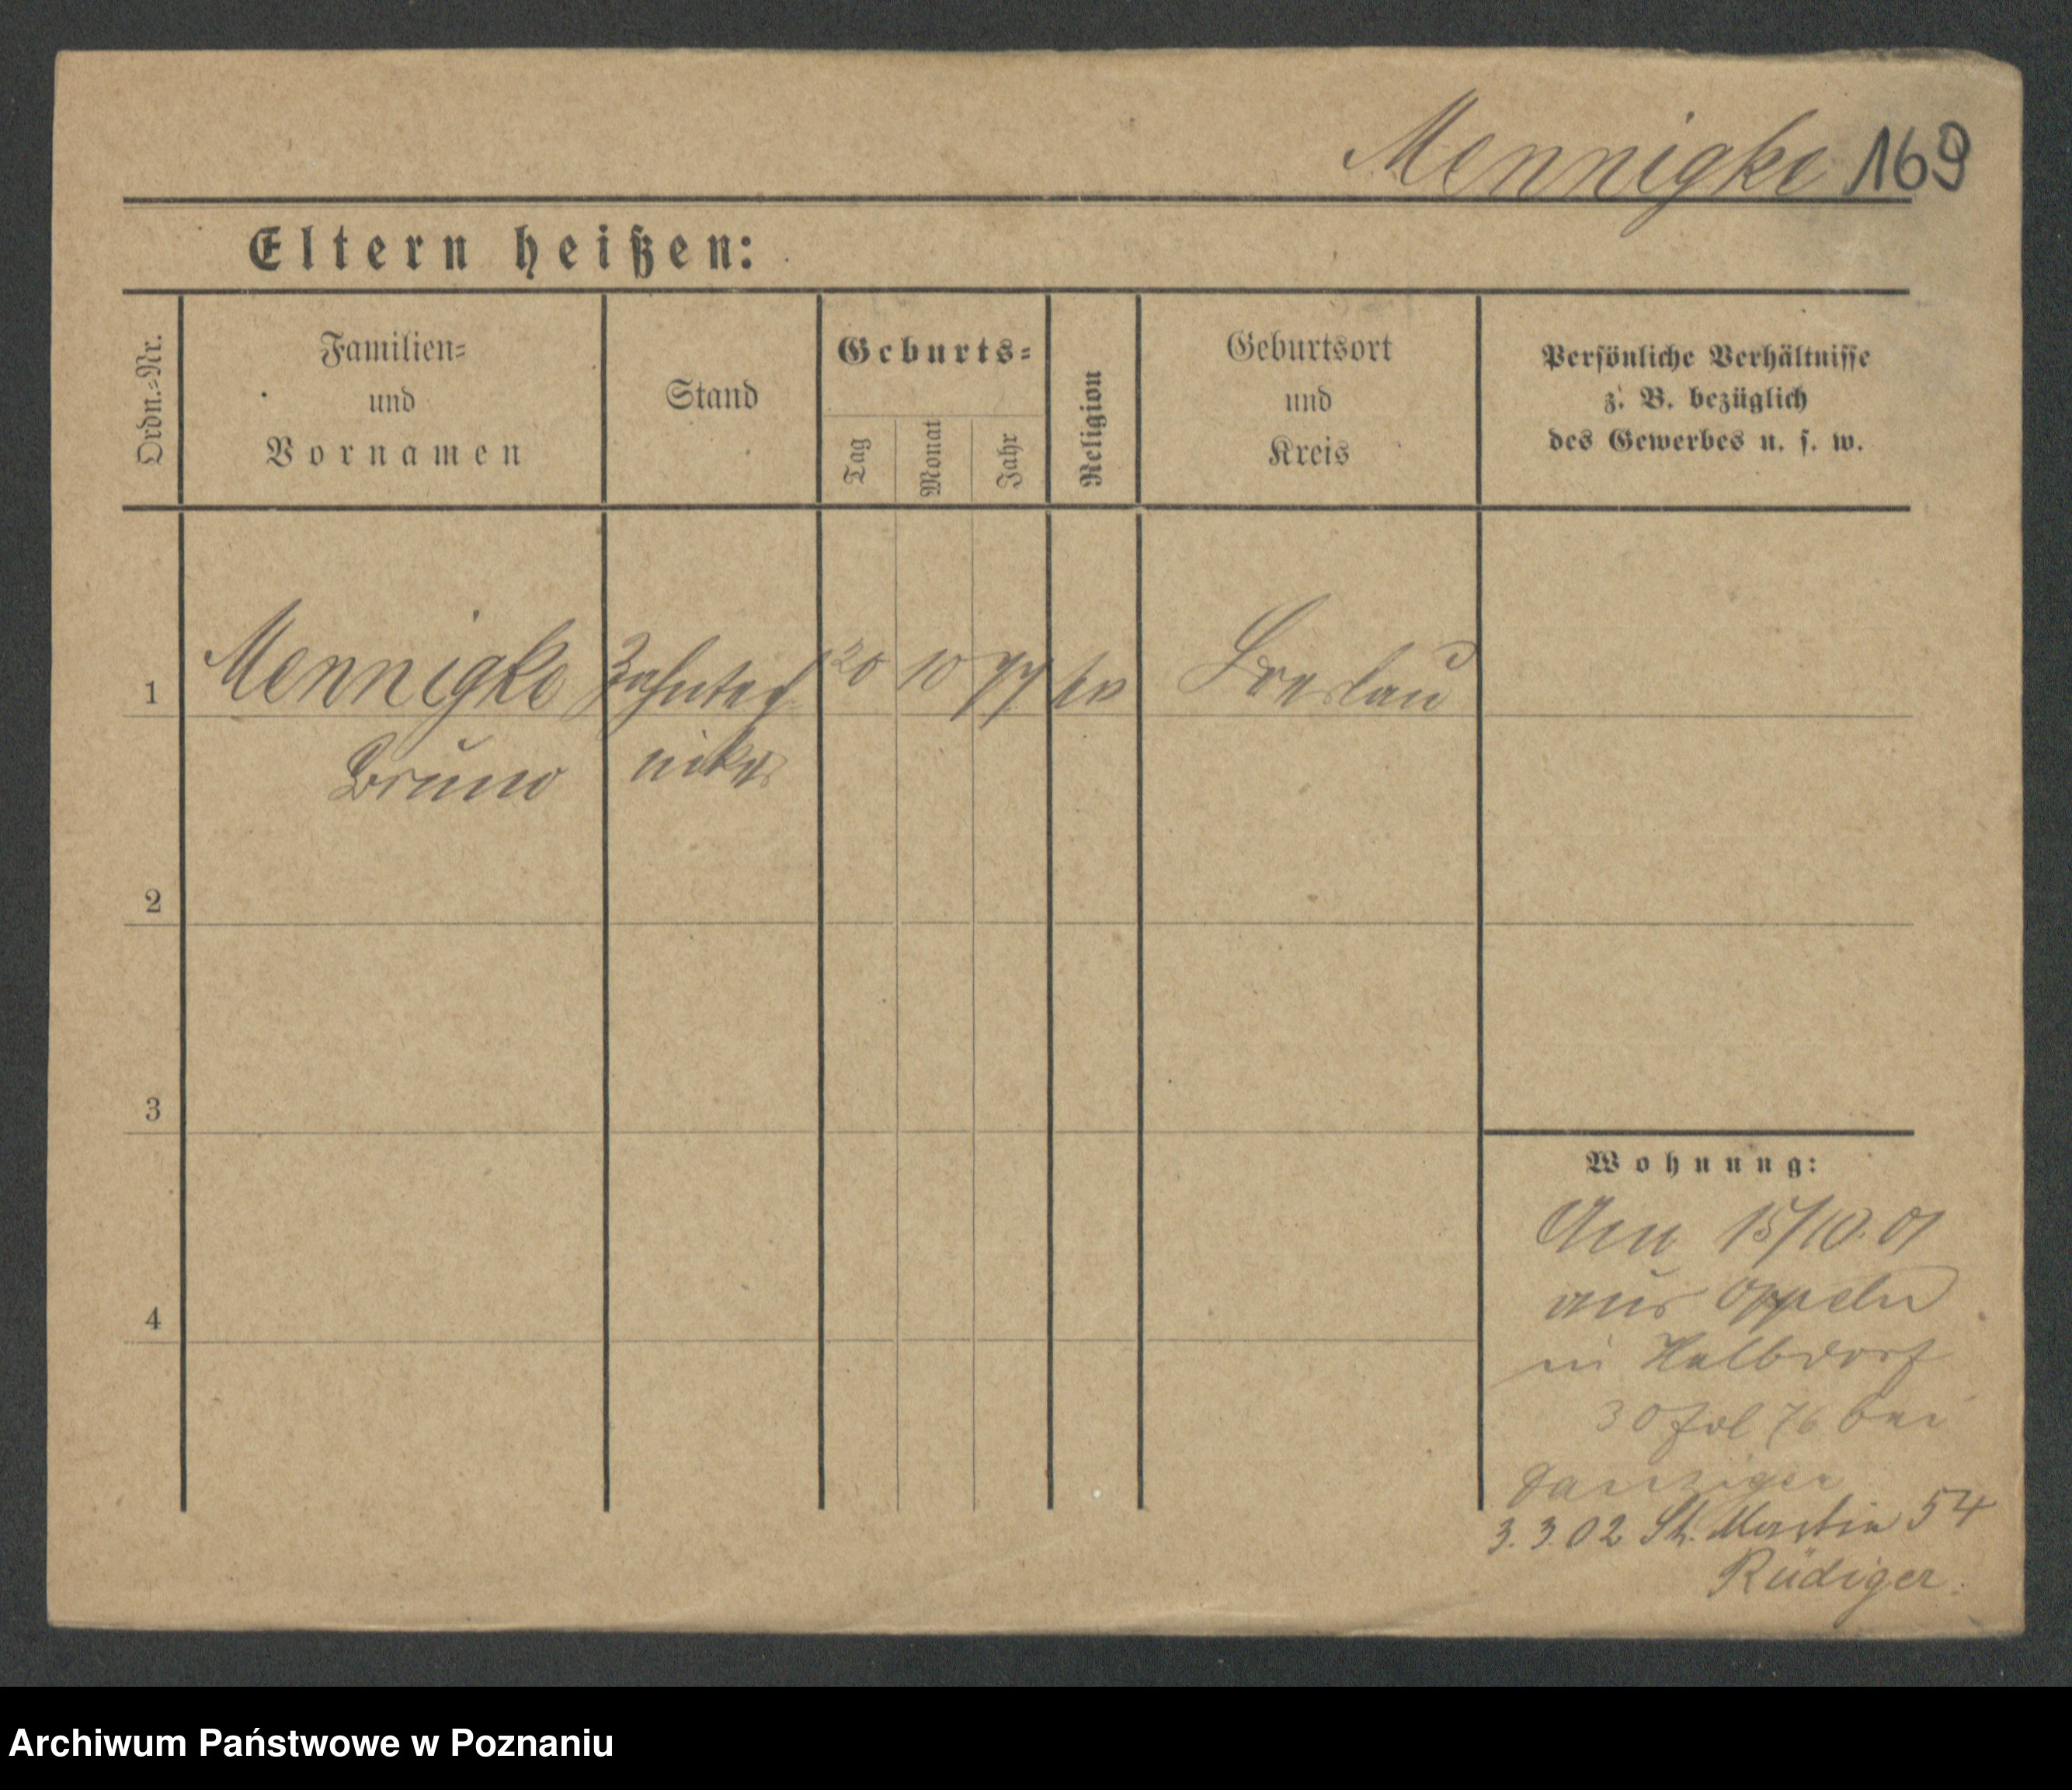 Mennigke 169
Eltern heißen:
Ordn.-Nr.
Familien-
und
Vornamen
Stand
Geburts-
Tag
Monat
Jahr
Religion
Geburtsort
und
Kreis
Persönliche Verhältnisse
z. B. bezüglich
des Gewerbes u. s. w.
1 Mennigke Zahntech 20 10 77 ev Breslau
Bruno niker
2
3
4
Wohnung:
Am 15/10.01
aus Oppeln
in Halbdorf
30 76 bei
Danziger
3.3.02 St. Martin 54
Rüdiger.
Archiwum Państwowe w Poznaniu